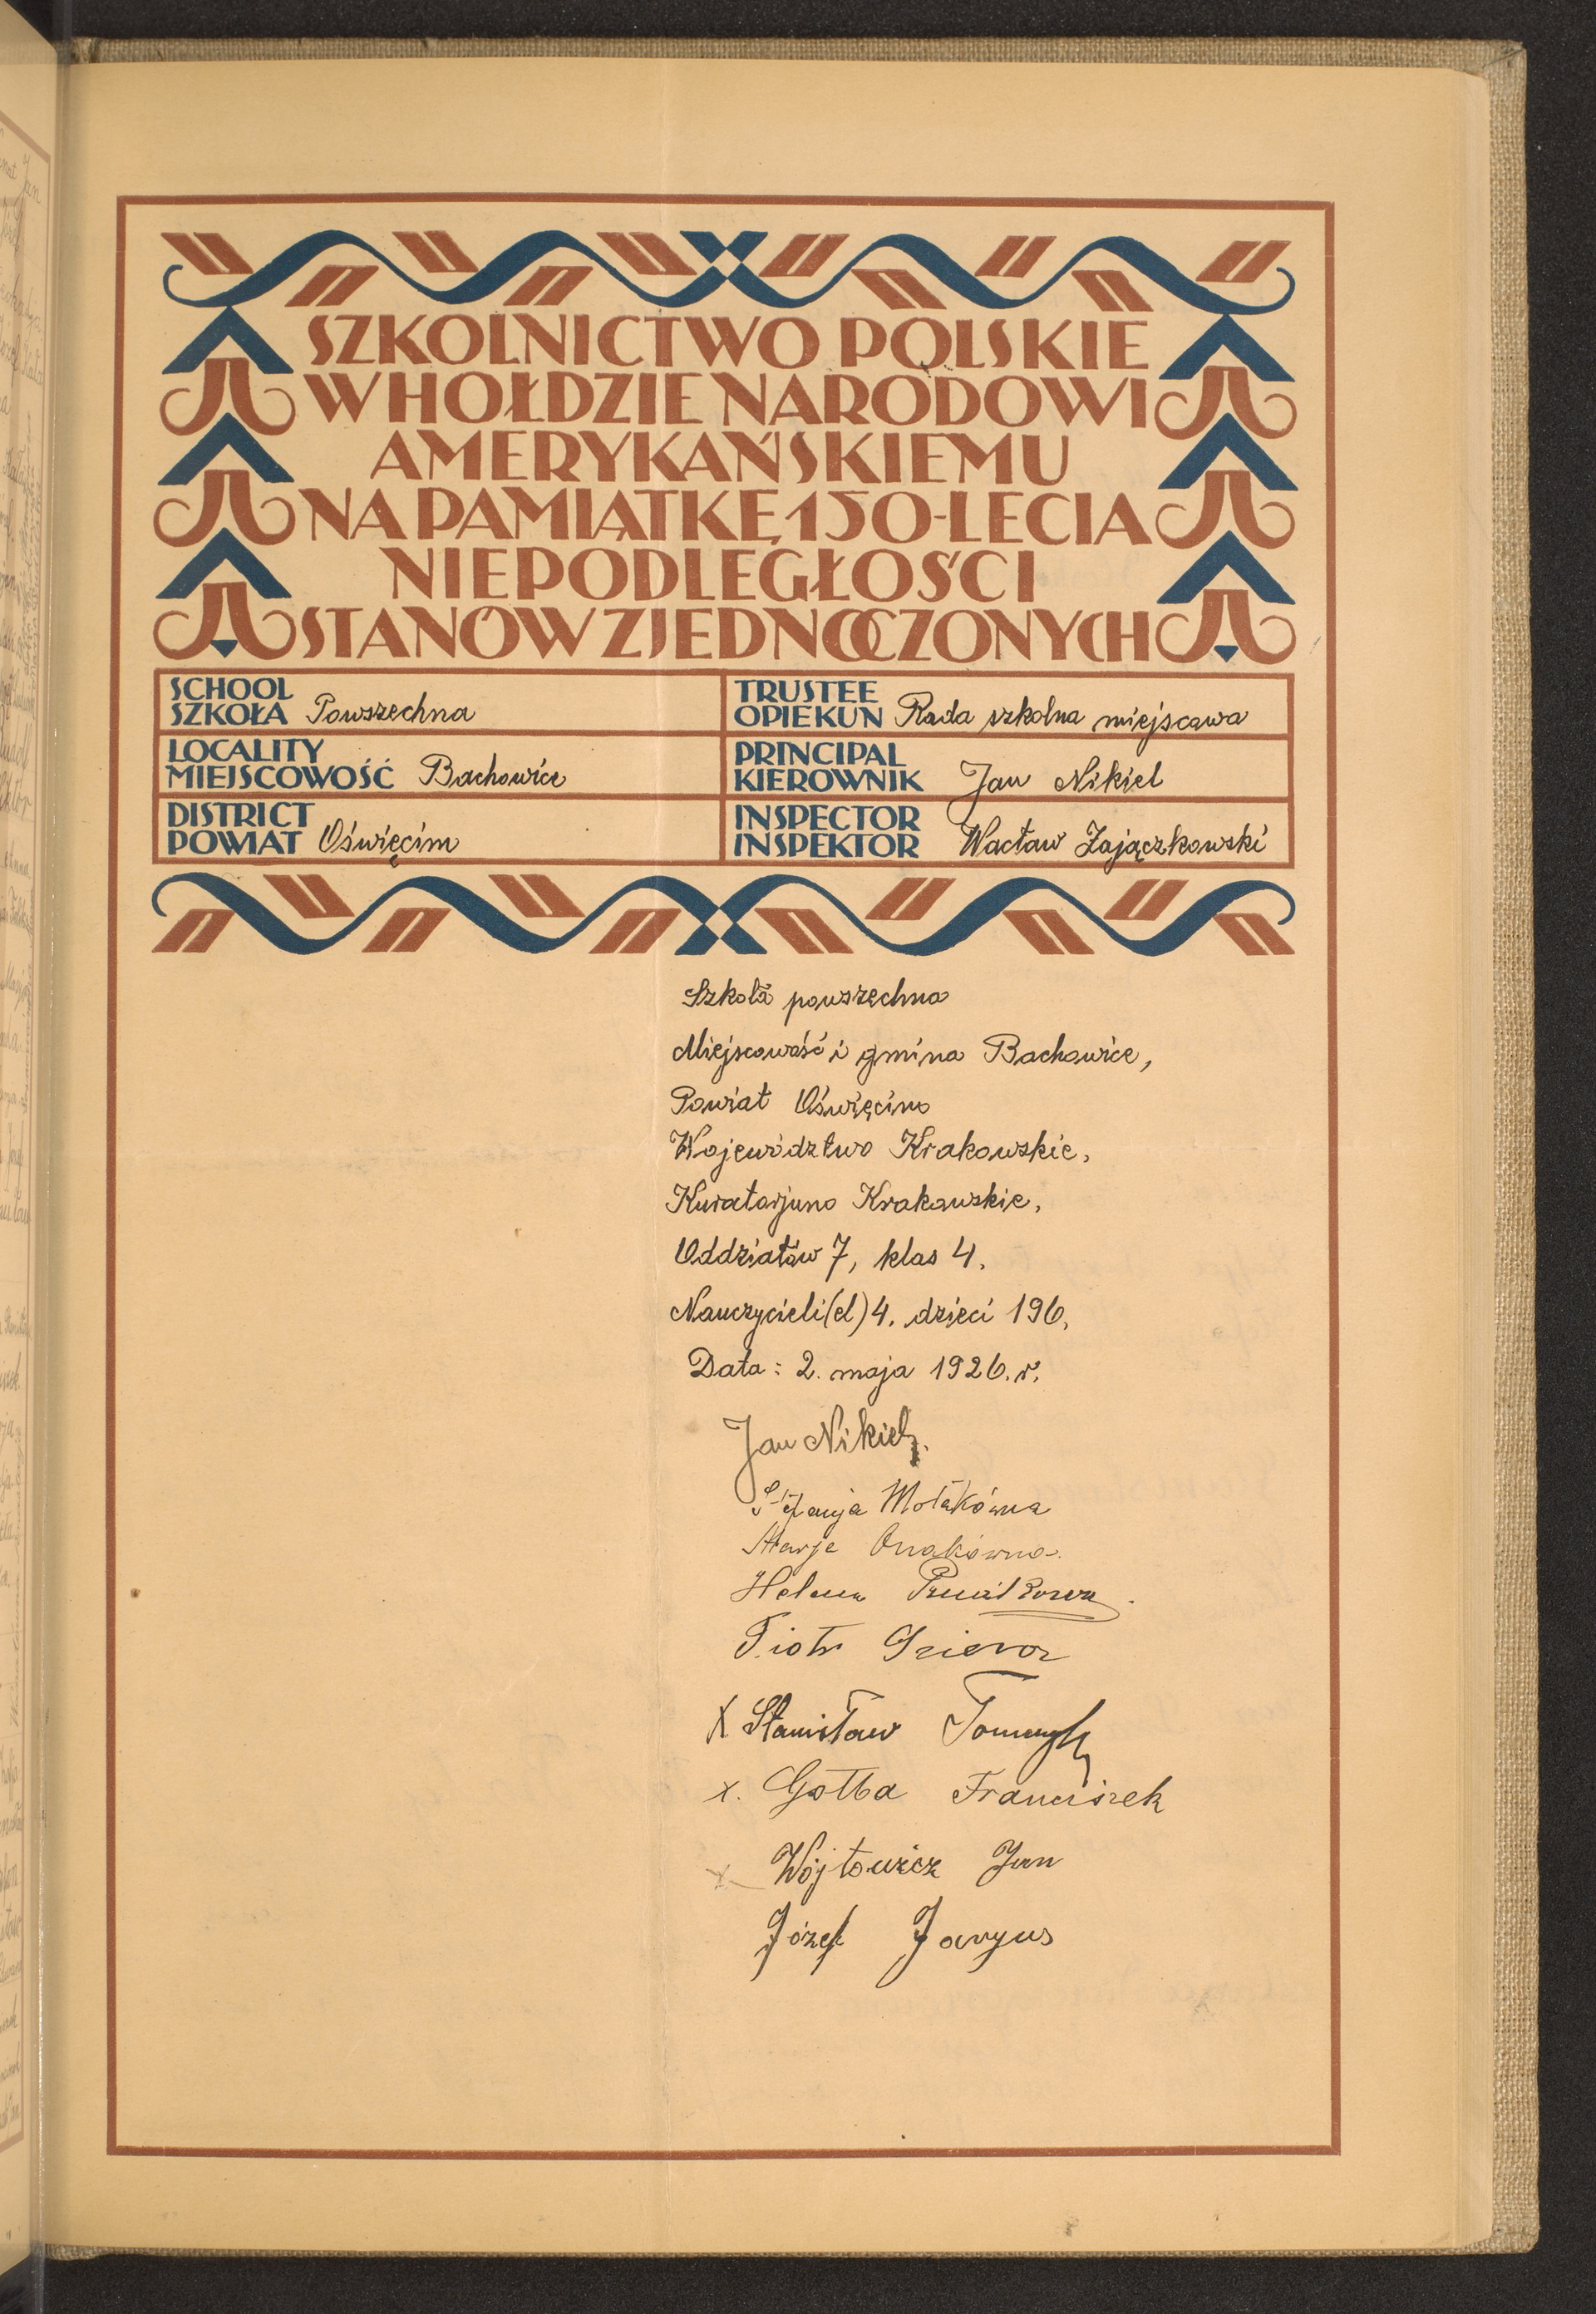 SZKOLNICTWO POLSKIE
W HOŁDZIE NARODOWI
AMERYKAŃSKIEMU
NA PAMIĄTKĘ 150-LECIA
NIEPODLEGŁOŚCI
STANÓW ZJEDNOCZONYCH
SCHOOL
SZKOŁA Powszechna
LOCALITY
MIEJSCOWOŚĆ Bachowice
DISTRICT
POWIAT Oświęcim
TRUSTEE
OPIEKUN Rada szkolna miejscowa
PRINCIPAL
KIEROWNIK Jan Nikiel
INSPECTOR
INSPEKTOR Wacław Zajączkowski
Szkoła powszechna
Miejscowość i gmina Bachowice,
Powiat Oświęcim
Województwo Krakowskie,
Kuratorjum Krakowskie,
Oddziałów 7, klas 4.
Nauczycieli(el) 4. dzieci 196,
Data: 2. maja 1926. r.
Jan Nikiel.
Stefanja Motakówna
Marja Onakówna
Helena
Piotr
X Stanisław Tomczyk
x. Gołba Franciszek
x Wójtowicz Jan
Józef